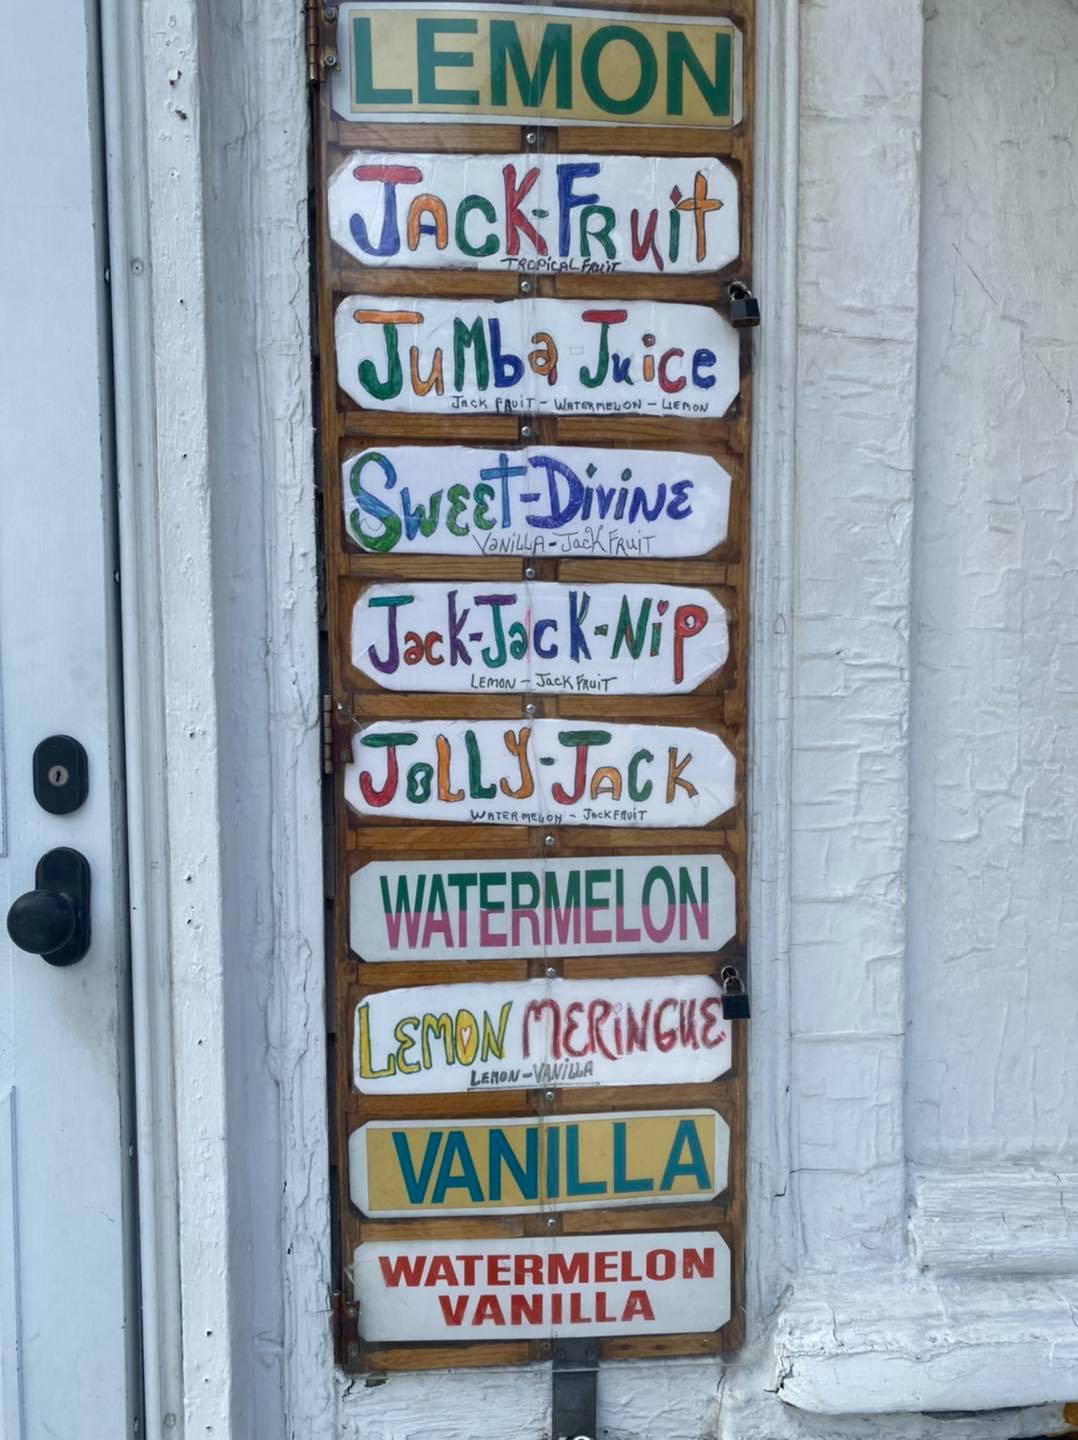 LEMON
JACK-FRuit
TROPICAL FRUIT
JuMba Juice
JACK FRUIT - WATERMELON - LEMON
SWEEt-DiviNE
VaNiLLA - JacK FRUIT
Jack-JacK-Nip
LEMON - JacK FRUIT
JOLLY-JACK
WATERMELON - JACKFRUIT
WATERMELON
LEMON MERiNGUE
LEMON-VANiLLA
VANILLA
WATERMELON
VANILLA